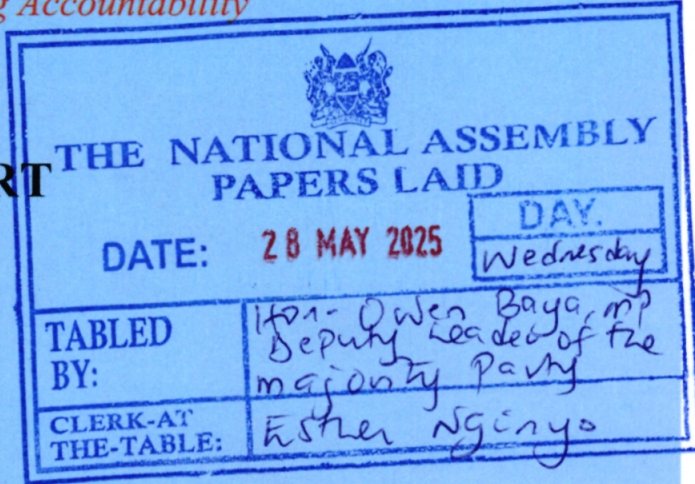 g Accountability
RT
THE NATIONAL ASSEMBLY
PAPERS LAID
DATE: 28 MAY 2025
DAY.
Wednesday
TABLED
BY:
Hon. Owen Baya, MP
Deputy Leader of the
majority Party
CLERK-AT
THE-TABLE:
Esther Nginyo